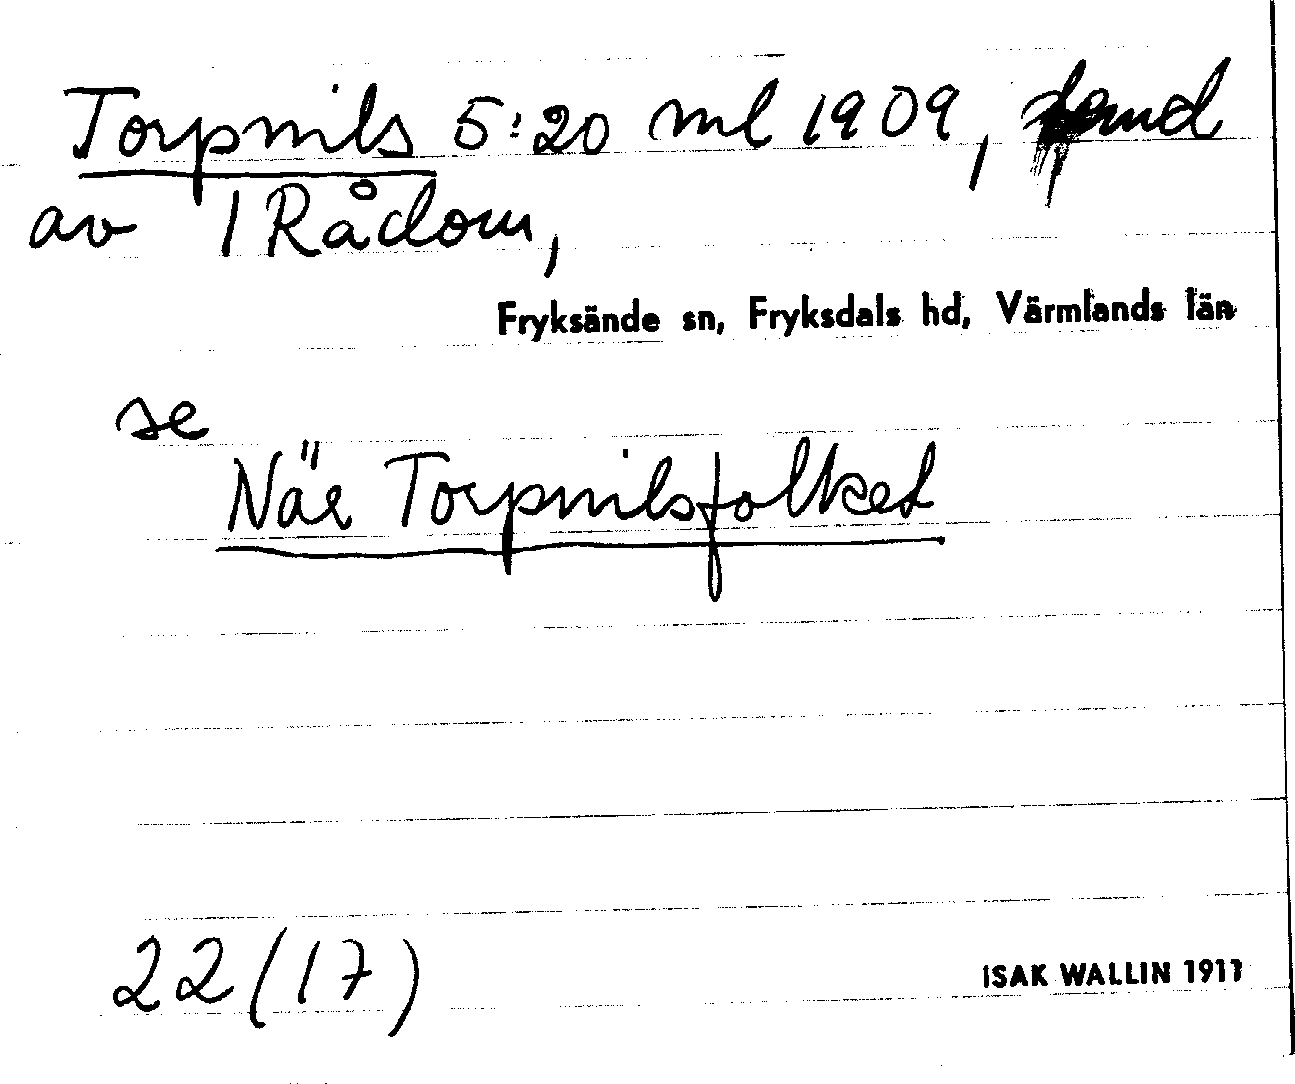 Torpnils 5:20 ml 1909,
av 1 Rådom,
Fryksände sn, Fryksdals hd, Värmlands län
se
När Torpnilsfolket
22 (17)
ISAK WALLIN 1911